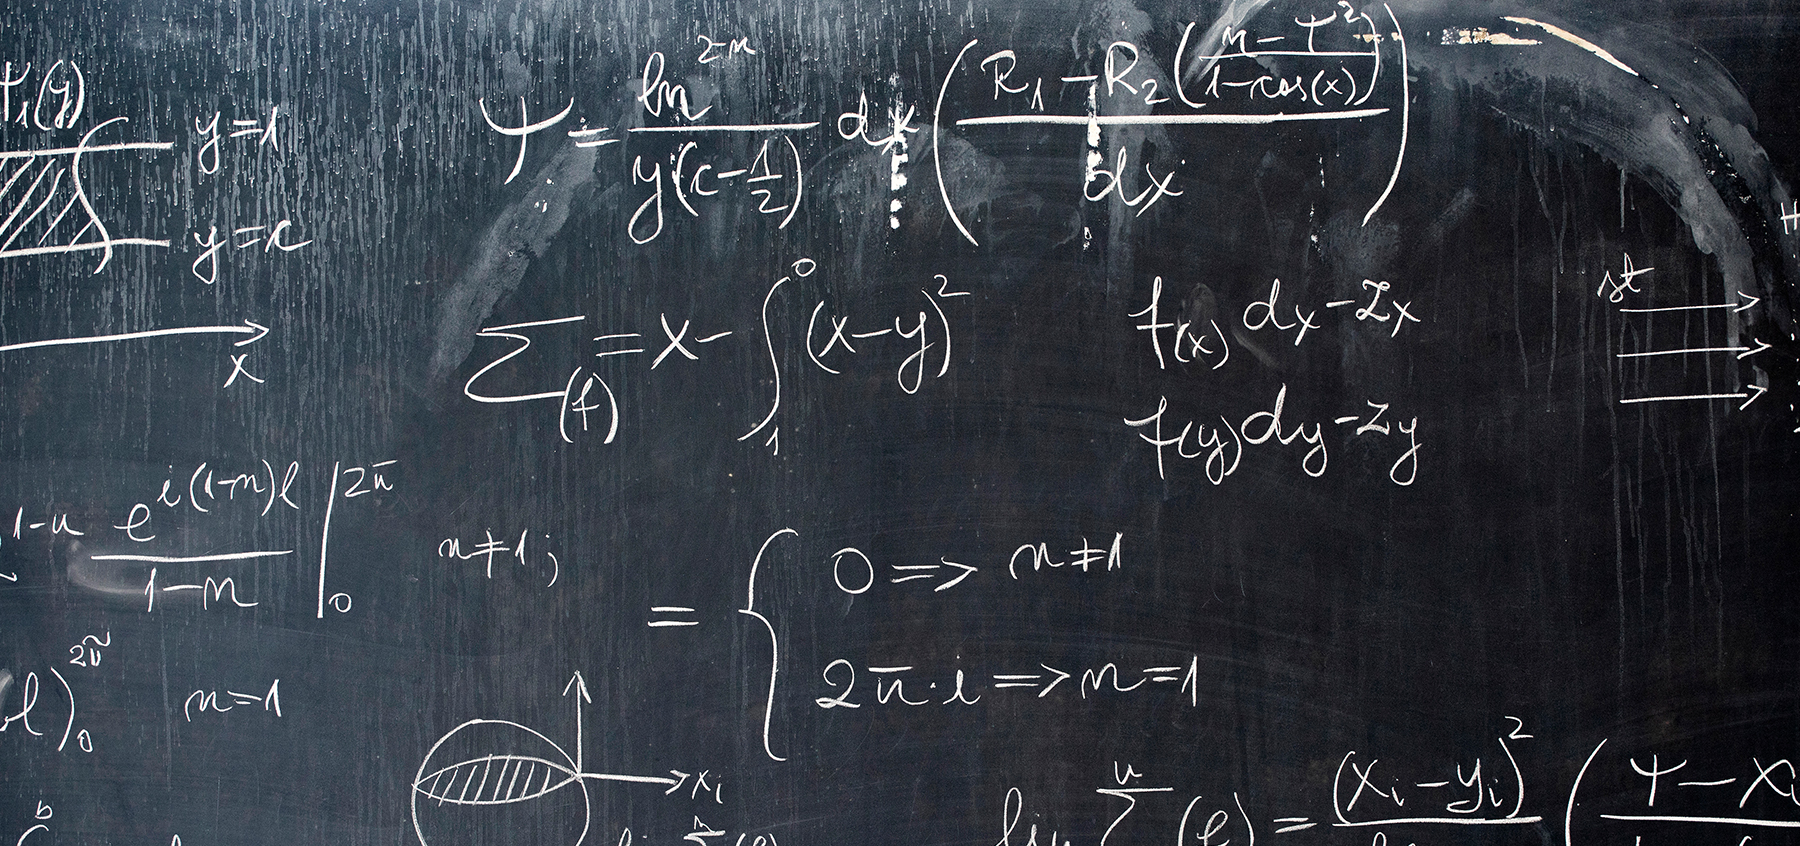 Ψ₁(y)
y=1
y=c
x
Ψ = ln^(2-n) / y(c-1/2) dx ( (R₁-R₂((n-Ψ²)/(1-cos(x)))) / dx )
Σ(f) = x - ∫₁⁰ (x-y)²
f(x) dx-2x
f(y) dy-2y
st
1-n e^(i(1-n)l) / (1-n) |₀^(2π) n≠1;
= { 0 => n≠1
2π·i => n=1
l)₀^(2π) n=1
x₁
b
(xᵢ-yᵢ)²
Ψ-Xᵢ